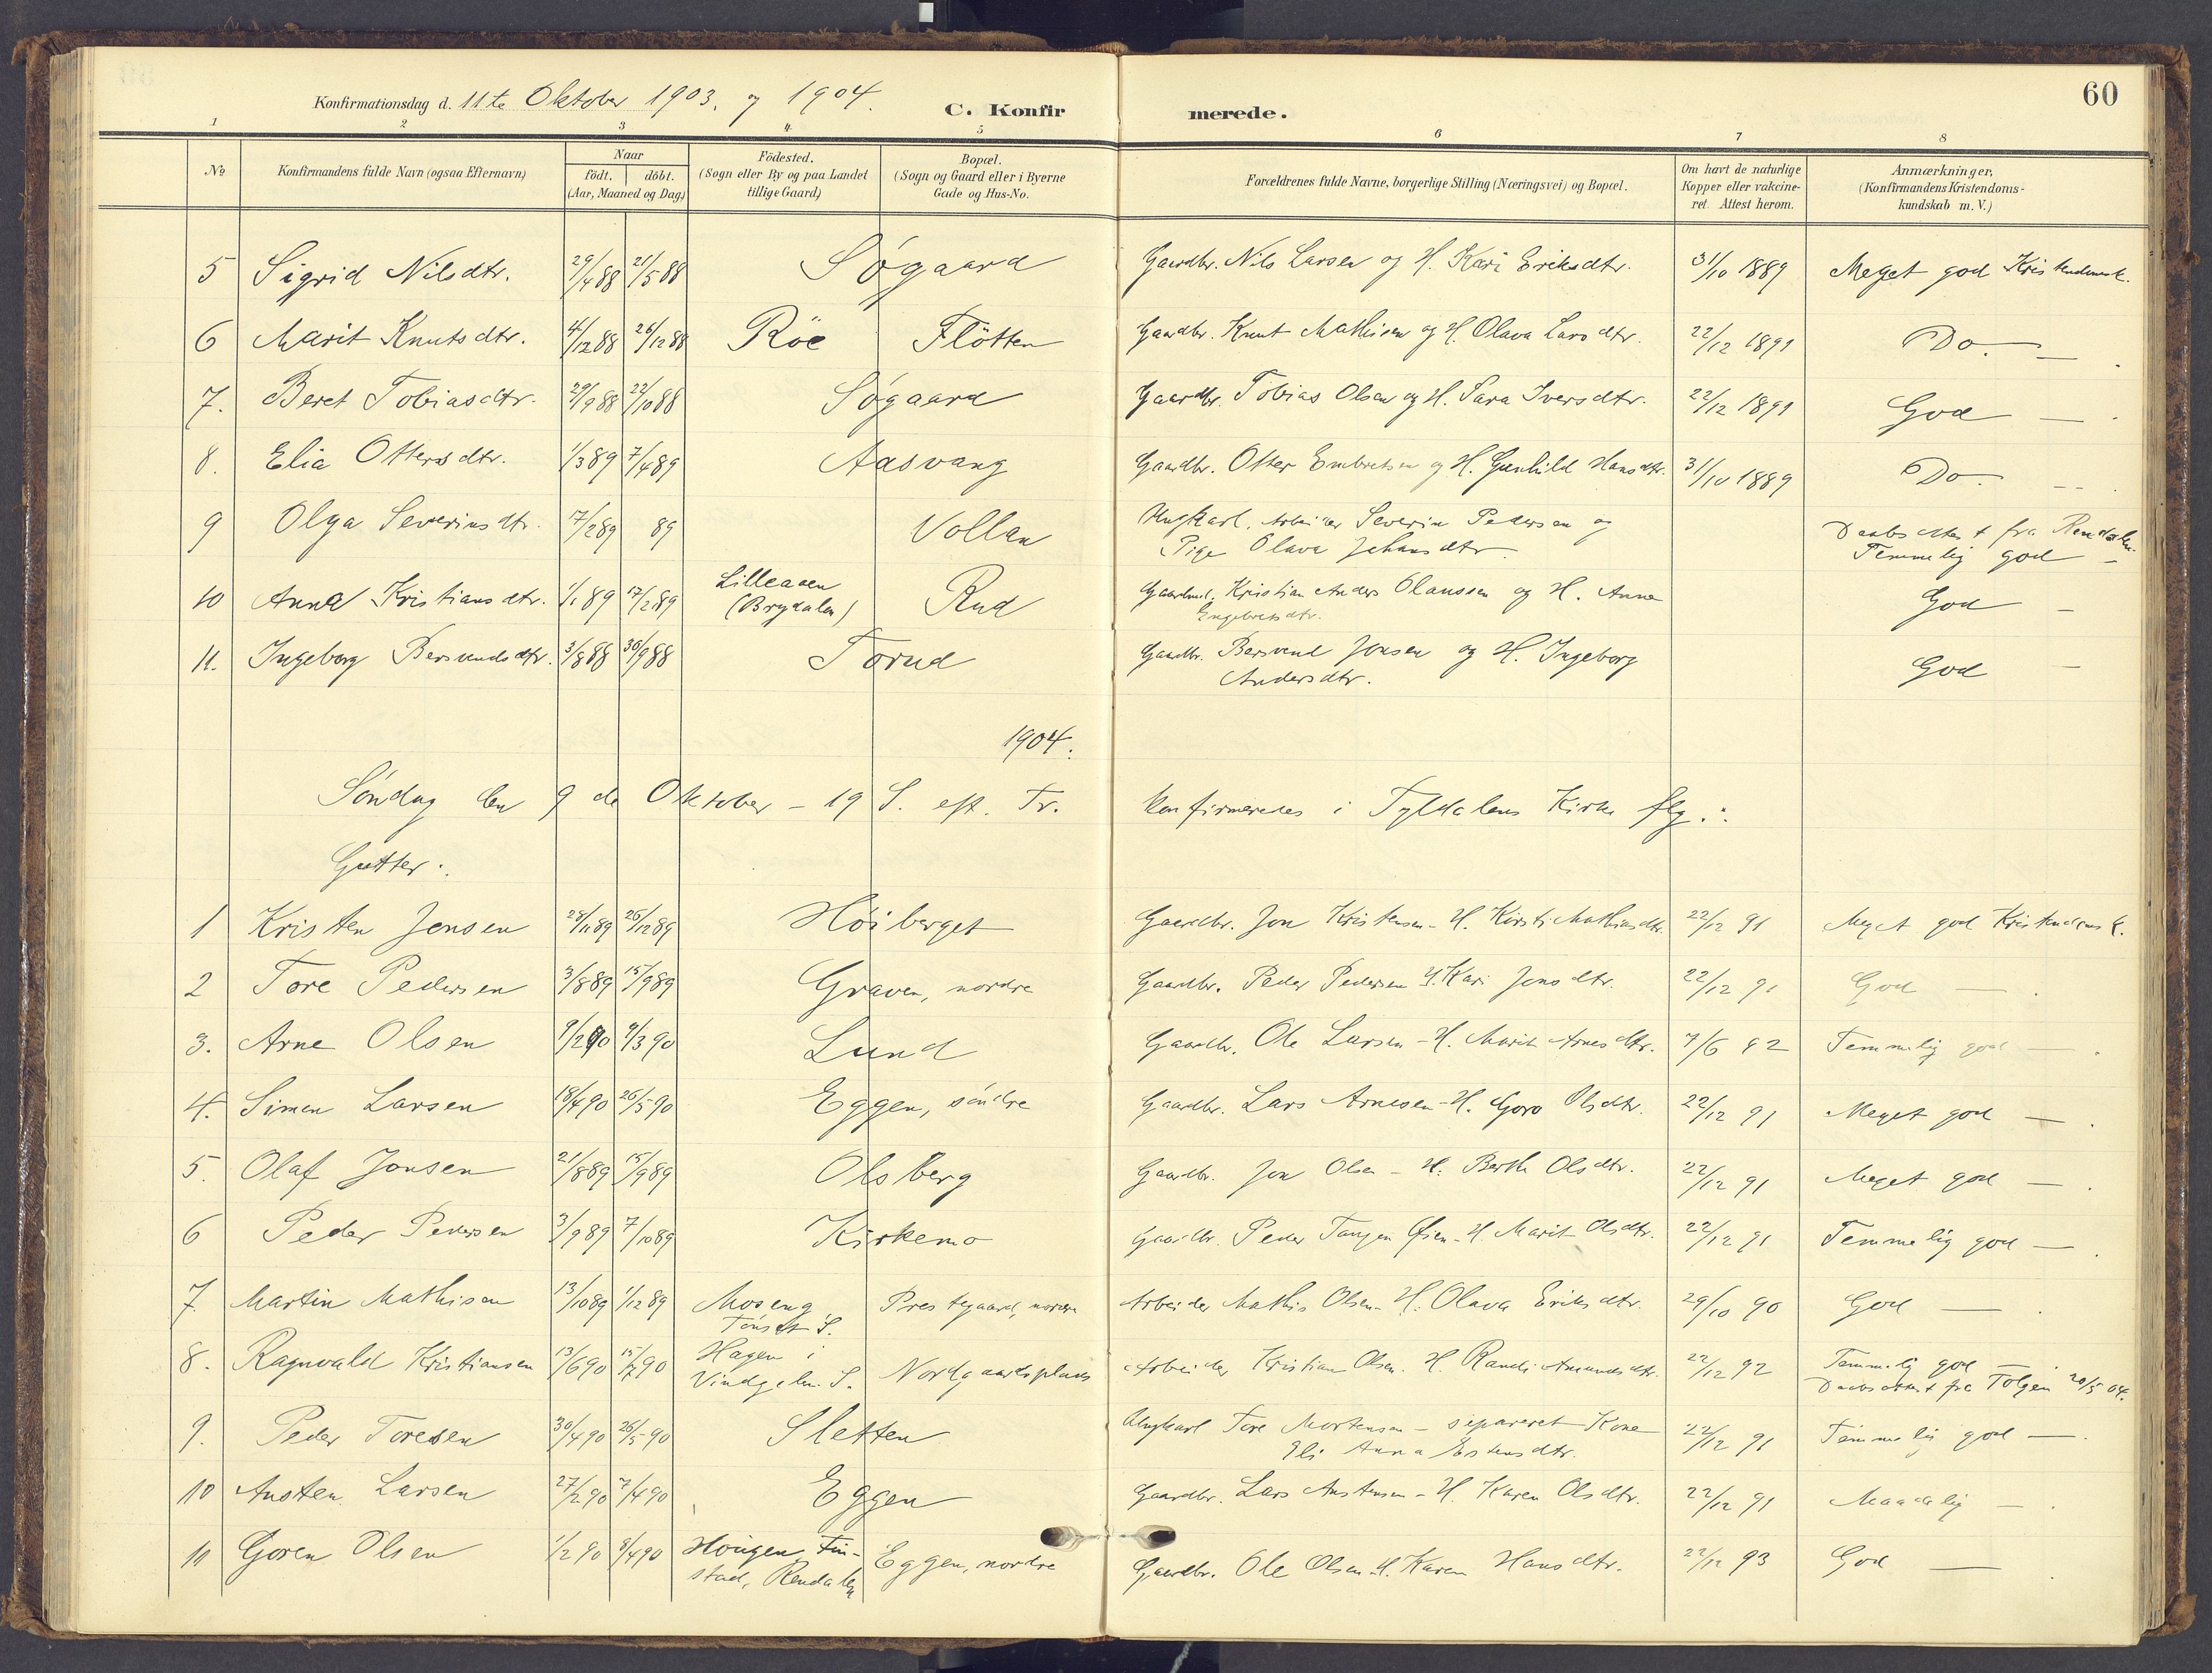 60
Konfirmationsdag d. 11te Oktober 1903. og 1904.
C. Konfirmerede.
1 2 3 4 5 6 7 8
No
Konfirmandens fulde Navn (ogsaa Efternavn)
Naar
födt. döbt.
(Aar, Maaned og Dag)
Födested.
(Sogn eller By og paa Landet
tillige Gaard)
Bopæl.
(Sogn og Gaard eller i Byerne
Gade og Hus-No.
Forældrenes fulde Navne, borgerlige Stilling (Næringsvei) og Bopæl.
Om havt de naturlige
Kopper eller vakcine-
ret. Attest herom.
Anmærkninger,
(Konfirmandens Kristendoms-
kundskab m. V.)
5 Sigrid Nilsdtr. 29/4 88 21/5 88 Søgaard Gaardbr. Nils Larsen og H. Kari Eriksdtr. 31/10 1889 Meget god Kristendomsk.
6 Marit Knutsdtr. 4/12 88 26/12 88 Röe Flötten Gaardbr. Knut Mathisen og H. Olava Larsdtr. 22/12 1891 Do. —
7. Beret Tobiasdtr. 29/9 88 22/10 88 Søgaard Gaardbr. Tobias Olsen og H. Sara Iversdtr. 22/12 1891 God —
8. Elia Ottersdtr. 1/3 89 7/4 89 Aasvang Gaardbr. Otter Embretsen og H. Gunhild Hansdtr. 31/10 1889 Do. —
9 Olga Severinsdtr. 17/2 89 89 Vollan Ungkarl. Arbeider Severin Pedersen og
Pige Olava Johansdtr. Daabsattest fra Rendalen.
Temmelig god —
10 Anna Kristiansdtr. 1/1 89 17/2 89 Lilleaasen
(Brydalen) Rud Gaardbr. Kristian Anders Olaussen og H. Anna
Engebretsdtr. God —
11. Ingeborg Bersvendsdtr. 3/8 88 30/9 88 Torud Gaardbr. Bersvend Jonsen og H. Ingeborg
Andersdtr. God —
1904.
Söndag den 9de Oktober – 19 S. eft. Tr. konfirmeredes i Tyldalens Kirke flg.:
Gutter:
1 Kristen Jonsen 28/11 89 26/12 89 Höiberget Gaardbr. Jon Kristensen – H. Kirsti Mathiasdtr. 22/12 91 Meget god Kristendomsk.
2 Tore Pedersen 3/8 89 15/9 89 Graven, nordre Gaardbr. Peder Pedersen H. Kari Jonsdtr. 22/12 91 God —
3. Arne Olsen 9/2 90 9/3 90 Lund Gaardbr. Ole Larsen – H. Marit Arnesdtr. 7/6 92 Temmelig god —
4. Simen Larsen 18/4 90 26/5 90 Eggen, söndre Gaardbr. Lars Arnesen – H. Goro Olsdtr. 22/12 91 Meget god —
5. Olaf Jonsen 21/8 89 15/9 89 Olsberg Gaardbr. Jon Olsen – H. Berthe Olsdtr. 22/12 91 Meget god —
6 Peder Pedersen 3/9 89 7/10 89 Kirkemo Gaardbr. Peder Tangen Øien – H. Marit Olsdtr. 22/12 91 Temmelig god —
7. Martin Mathisen 13/10 89 1/12 89 Moseng,
Tönset S. Prestegaard, nordre Arbeider Mathis Olsen – H. Olava Eriksdtr. 29/10 90 God —
8. Ragnvald Kristiansen 13/6 90 15/7 90 Hagen i
Vindgelen S. Nordgaardsplads Arbeider Kristian Olsen. H. Randi Amundsdtr. 22/12 92 Temmelig god —
Daabsattest fra Tolgen 20/5 04.
9. Peder Toresen 30/4 90 26/5 90 Sletten Ungkarl Tore Mortensen – separeret Kone
Eli Anna Estensdtr. 22/12 91 Temmelig god —
10 Austen Larsen 27/2 90 7/4 90 Eggen Gaardbr. Lars Austensen – H. Karen Olsdtr. 22/12 91 Maadelig —
11 Goren Olsen 1/2 90 8/4 90 Hougen, Fin-
stad, Rendalen Eggen, nordre Gaardbr. Ole Olsen – H. Karen Hansdtr. 22/12 93 God —